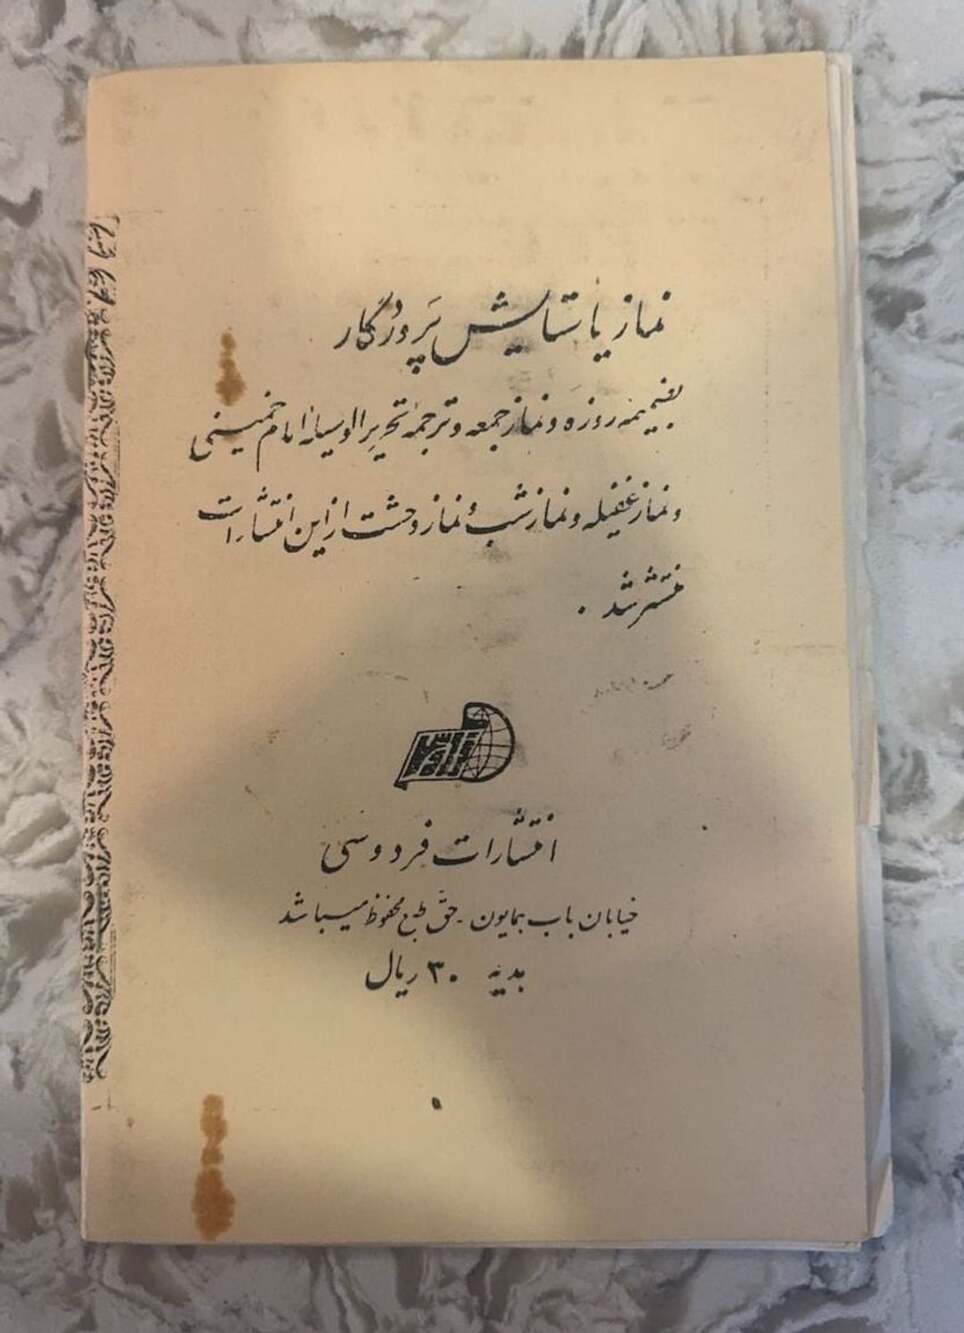 نماز یا ستایش پَروَردگار
بضمیمه روزه و نماز جمعه و ترجمهٔ تحریر الوسیله امام خمینی
و نماز غفیله و نماز شب و نماز وحشت از این انتشارات
منتشر شد .
انتشارات فردوسی
خیابان باب همایون - حق طبع محفوظ میباشد
هدیه ۳۰ ریال